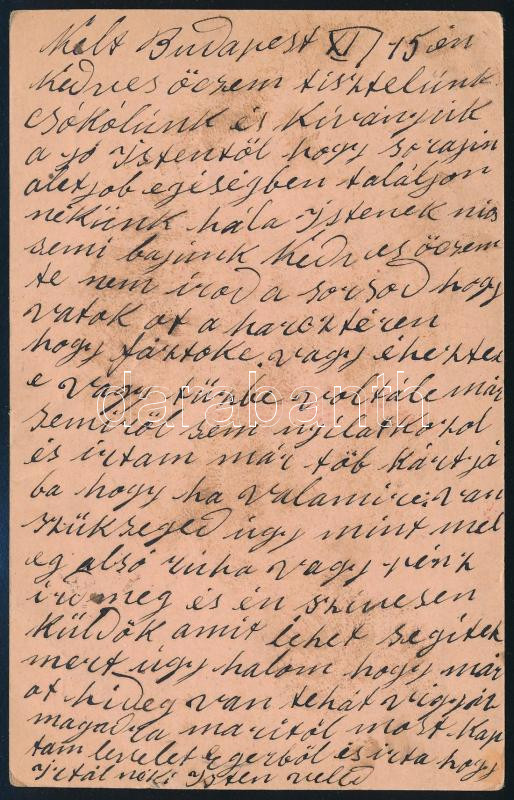 Kelt Budapest XI/15 én
Kedves öczem tisztelünk
csókólúnk és Kívánjúk
a jó Istentől hogy sorajin
aletjob egéségben találjon
nékünk hála Istenek nics
semi bajúnk Kedves öczem
te nem irod a sorsod hogy
vatok ot a harcztéren
hogy fáztoke vagy éheztek
e vagy tűzbe voltále már
semiről sem nyilatkozol
és irtam már töb kártjá
ba hogy ha valamire van
szükséged úgy mint mel
eg alsó rúha vagy pénz
ird meg és én szivesen
küldök amit lehet segitek
mert úgy halom hogy már
ot hideg van tehát vigyáz
magadra maritól most kap
tam levelet Egerből és irta hogy
Irtál néki Isten veled
darabanth